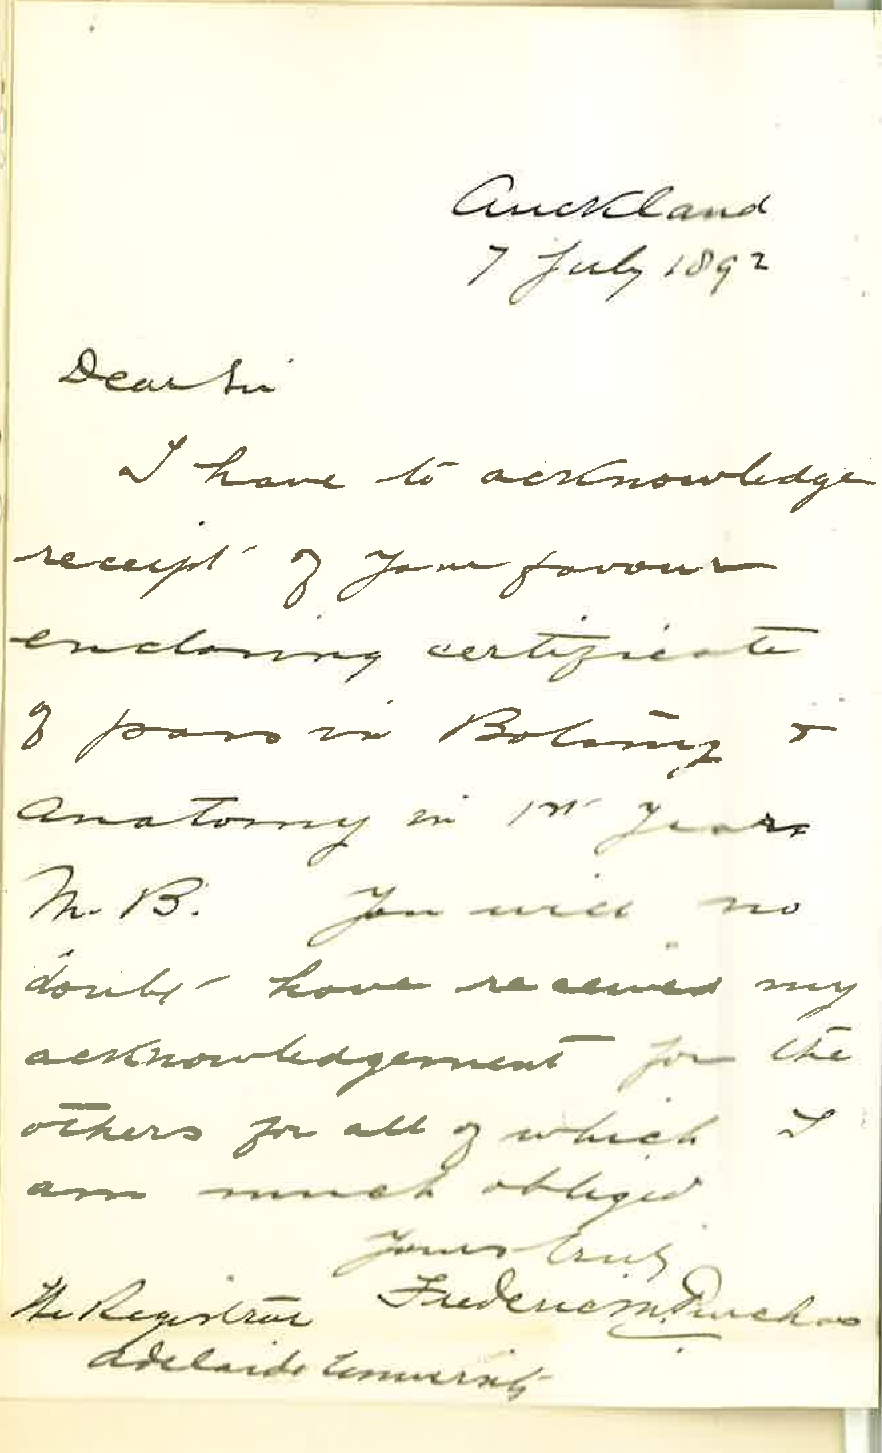 Auckland
7 July 1892
Dear Sir
I have to acknowledge
receipt of your favour
enclosing certificate
of pass in Botany &
Anatomy in 1st Years
M. B. You will no
doubt have received my
acknowledgement for the
others for all of which I
am much obliged
Yours truly
Frederic M. Purchas
The Registrar
Adelaide University